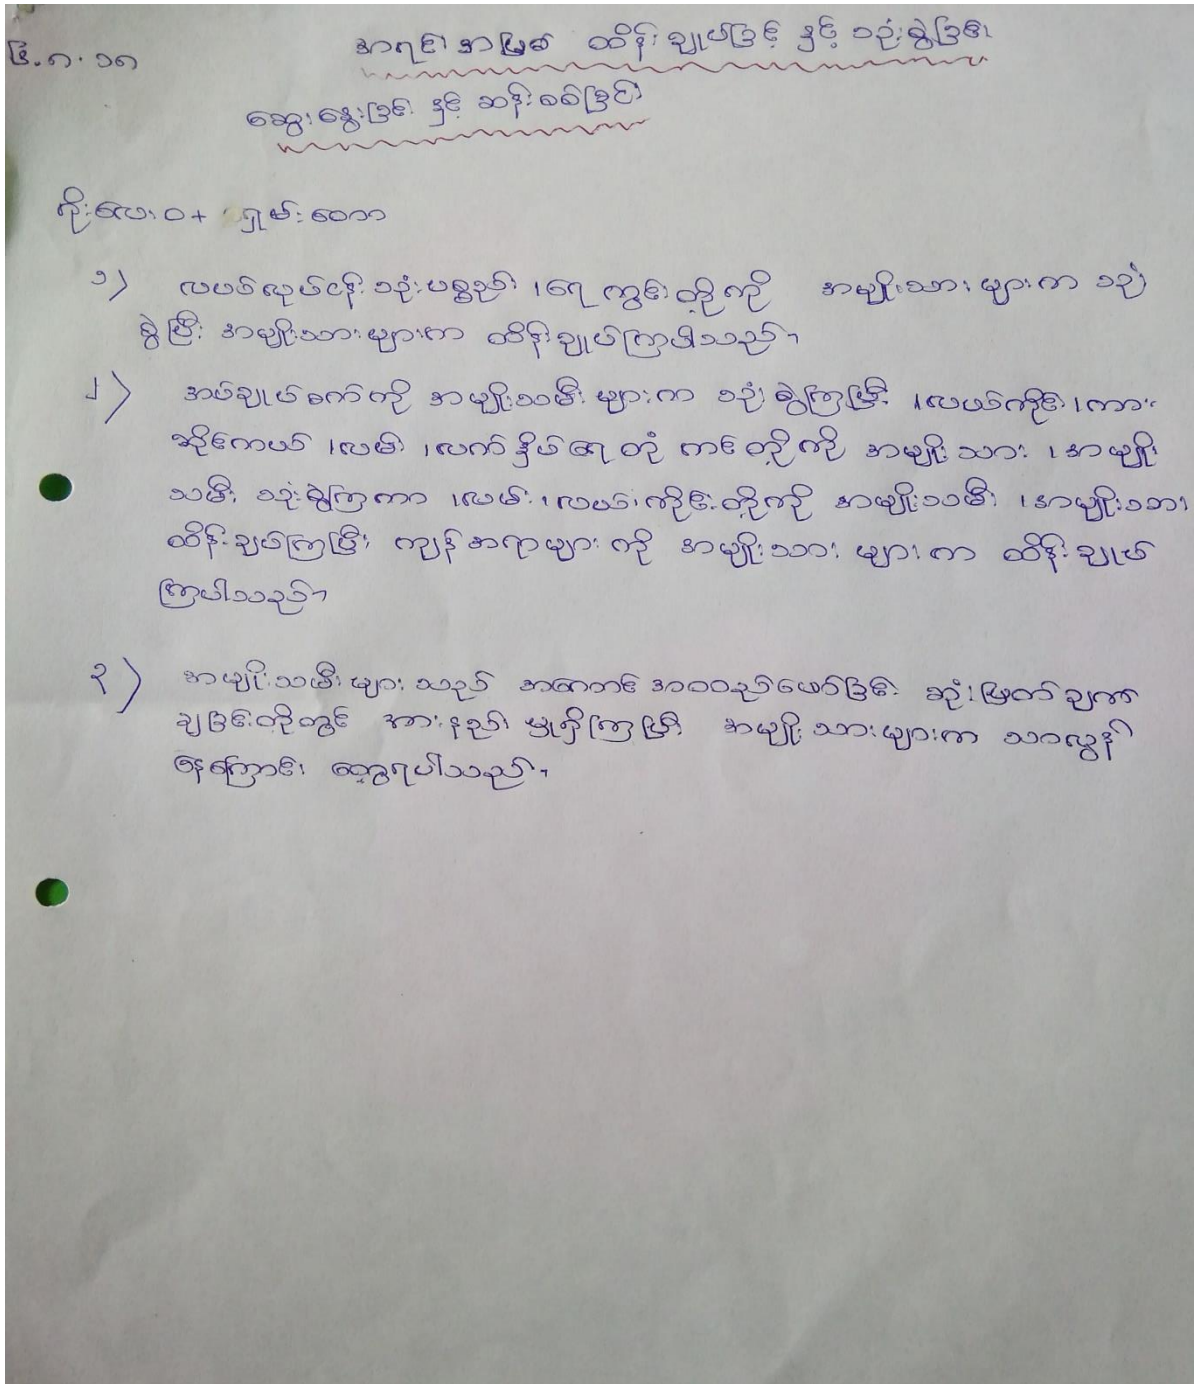 အရင်းအမြစ် ထိန်းချုပ်ခြင်း နှင့် သုံးစွဲခြင်း
ဆွေးနွေးခြင်း နှင့် ဆန်းစစ်ခြင်း
ကိုးလေးဝ + ရှမ်း
၁) လုပ်ငန်းသုံးပစ္စည်း ၊ရေကွင်းတို့ကို အမျိုးသားများက သုံး
စွဲပြီး အမျိုးသားများက ထိန်းချုပ်ကြပါသည်။
၂) အပ်ချုပ်စက်ကို အမျိုးသမီးများက သုံးစွဲကြပြီး ၊လယ်ကိုင်း ၊ကား
ဆိုင်ကယ် ၊လမ်း ၊လက်နှိပ်ရေတုံကင်တို့ကို အမျိုးသား ၊အမျိုး
သမီး သုံးစွဲကြကာ ၊လမ်း ၊လယ် ၊ကိုင်းတို့ကို အမျိုးသမီး ၊အမျိုးသား
ထိန်းချုပ်ကြပြီး ကျန်အရာများကို အမျိုးသားများက ထိန်းချုပ်
ကြပါသည်။
၃) အမျိုးသမီးများသည် ဆုံးဖြတ်ချက်
ချခြင်းတို့တွင် အားနည်းမှုရှိကြပြီး အမျိုးသားများက သာလွန်
နေကြောင်း တွေ့ရပါသည်။